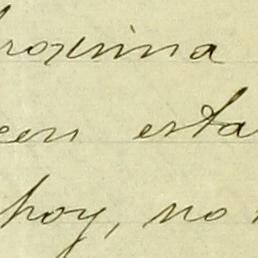 roxima
een esta
hoy, no